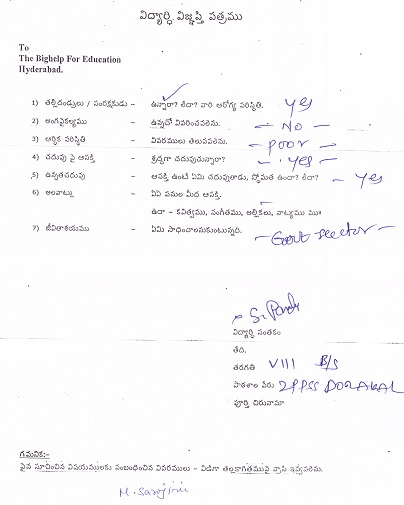 విద్యార్ధి విజ్ఞప్తి పత్రము
To
The Bighelp For Education
Hyderabad.
1) తల్లిదండ్రులు / సంరక్షకుడు - ఉన్నారా? లేదా? వారి ఆరోగ్య పరిస్థితి. yes
2) అంగవైకల్యము - ఉన్నచో వివరించవలెను. - NO -
3) ఆర్థిక పరిస్థితి - వివరములు తెలుపవలెను. - poor -
4) చదువు పై ఆసక్తి - శ్రద్ధగా చదువుచున్నారా? - yes -
5) ఉన్నతచదువు - ఆసక్తి ఉంటే ఏమి చదువుతాడు, స్తోమత ఉందా? లేదా? - yes
6) అలవాట్లు - ఏఏ పనుల మీద ఆసక్తి.
ఉదా - కవిత్వము, సంగీతము, అల్లికలు, నాట్యము
7) జీవితాశయము - ఏమి సాధించాలనుకుంటున్నది. - Govt sector -
విద్యార్ధి సంతకం
తేది.
తరగతి VIII B/S
పాఠశాల పేరు ZPPSS DORAKAL
పూర్తి చిరునామా
గమనిక:-
పైన సూచించిన విషయములకు సంబంధించిన వివరములు - విడిగా తెల్లకాగితముపై వ్రాసి ఇవ్వవలెను.
M. Sarojini